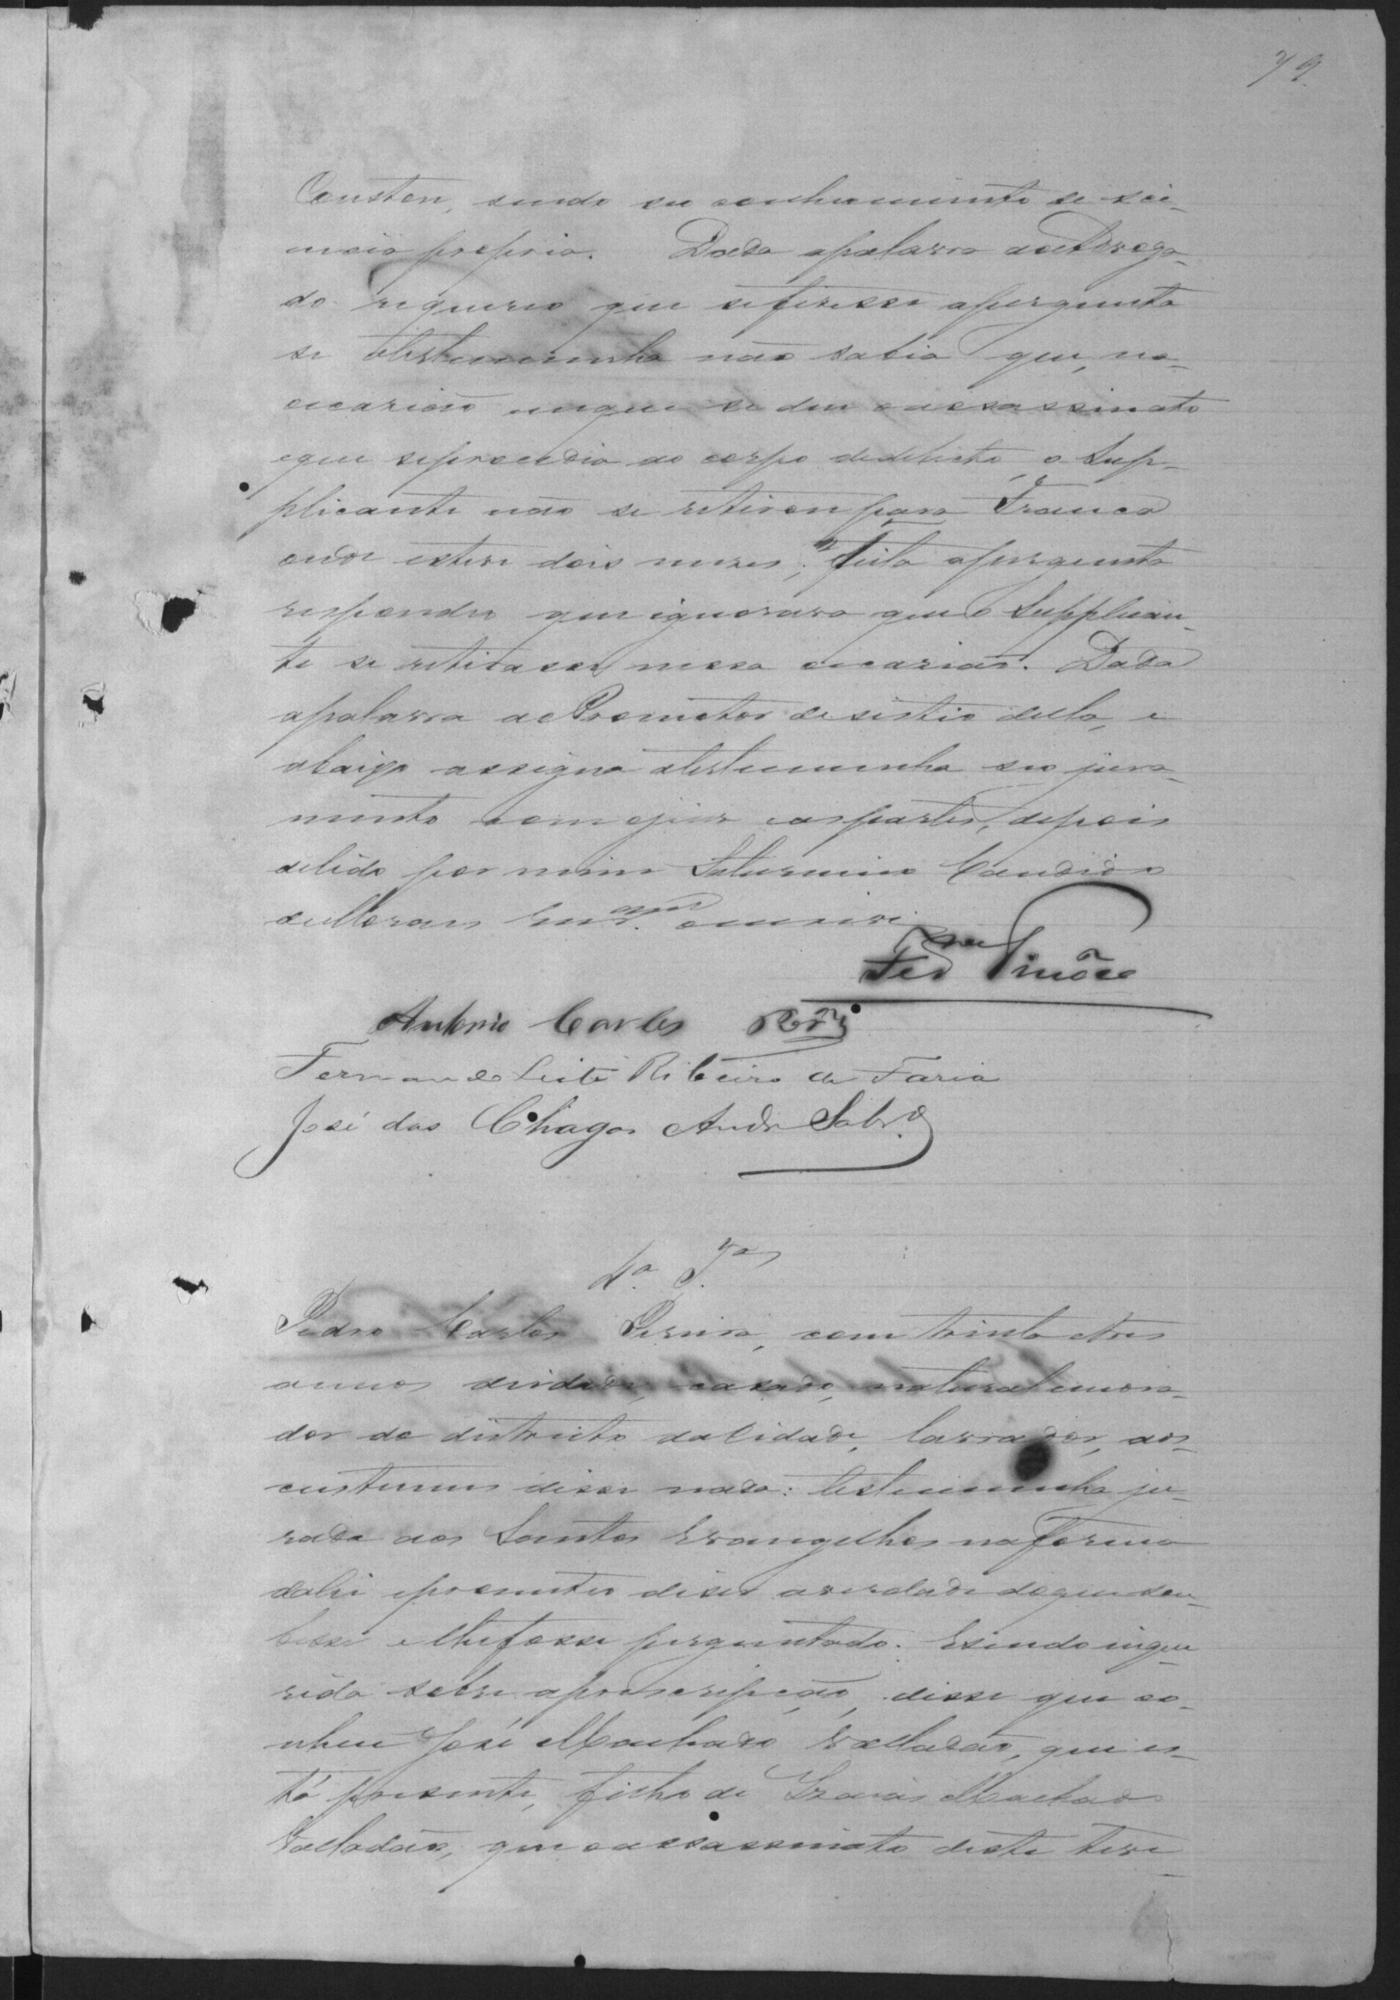 79
Constou, sendo seu conhecimento de sci-
encia propria. Dada apalavra aoAdvoga-
do requereo que sefizesse apergunta
se atestemunha não sabia que, na
occazião emque se deu oassassinato
eque seprocedia ao corpo dedelicto, o Sup-
plicante não se retirou para Franca
onde esteve dois mezes; feita apergunta
respondeu que ignorava que o Supplican-
te se retirasse nessa occazião. Dada
apalavra aoPromotor desistio della, e
abaixo assigna atestemunha seo jura-
mento com ojuiz easpartes, depois
delido por mim Saturnino Candido
deMoraes escrivi.
Antonio Carlos
Fernando Leite Ribeiro de Faria
José das Chagas Andr Sobr.o
4.a T.a
Pedro Carlos Pereira, com trinta etres
annos deidade, casado, natural emora-
dor do districto daCidade, lavrador, aos
custumes disse nada: testemunha ju-
rada aos Santos Evangelhos naforma
dalei eprometeo dizer averdade doque sou-
besse elhefosse perguntado. Esendo inque-
rida sobre aproscripção, disse que co-
nhece José Machado Valladão, que es-
tá presente, filho de Izaias Machado
Valladão, que oassassinato deste teve